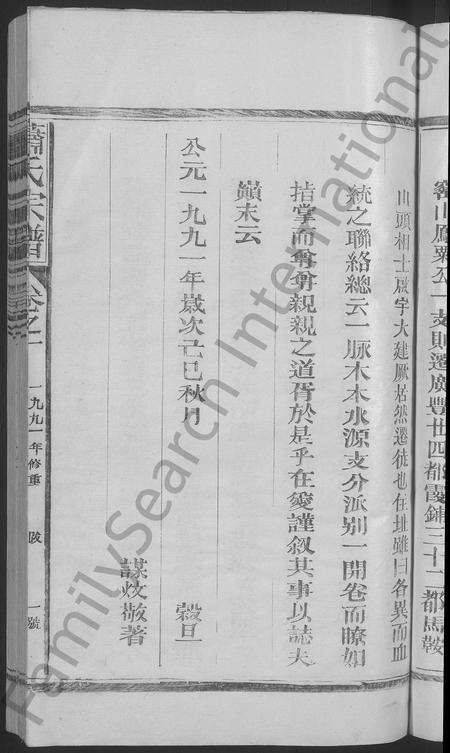 山頭相士啟宇大建厥居然遷徙也住址雖曰各異而血
統之聯絡總云一脈木本水源支分派别一開卷而瞭如
指掌而尊尊親親之道胥於是乎在爰謹叙其事以誌夫
巔末云
公元一九九一年歲次己巳秋月 穀旦
謀炆敬著
蕭氏宗譜 卷之一 一九九一年修重 跋 一號
公一支則遷廣豐廿四都霞鋪三十二都馬鞍
FamilySearch International